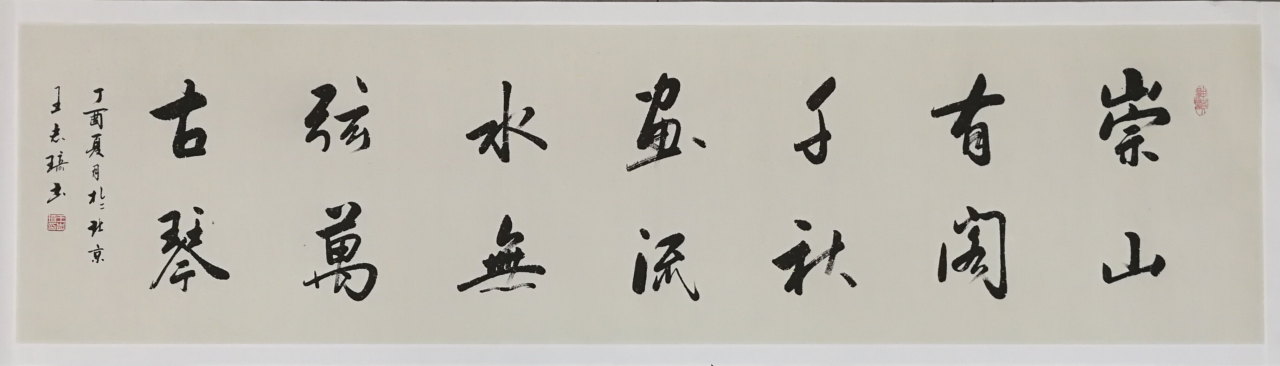 崇山
有阁
千秋
画流
水無
弦萬
古琴
丁酉夏月於北京
王志琦书